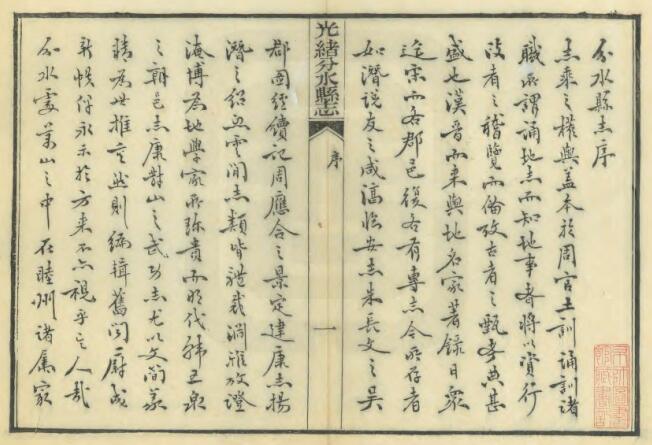 分水縣志序
志乘之權輿蓋本於周官土訓誦訓諸
職所謂誦地志而知地事者將以資行
政者之稽覽而備攷古者之甄考典甚
盛也漢晉而來輿地名家著錄日眾
迄宋而各郡邑復各有專志今所存者
如潛說友之咸淳臨安志朱長文之吳
光緒分水縣志
序
一
郡圖經續記周應合之景定建康志楊
潛之紹熙雲間志類皆體裁淵雅攷證
淹博為地學家所珍貴而明代韓五泉
之朝邑志康對山之武功志尤以文簡事
精為世推重然則編輯舊聞蔚成
新帙俾永示於方來不亦視乎其人哉
分水處萬山之中在睦州諸屬家